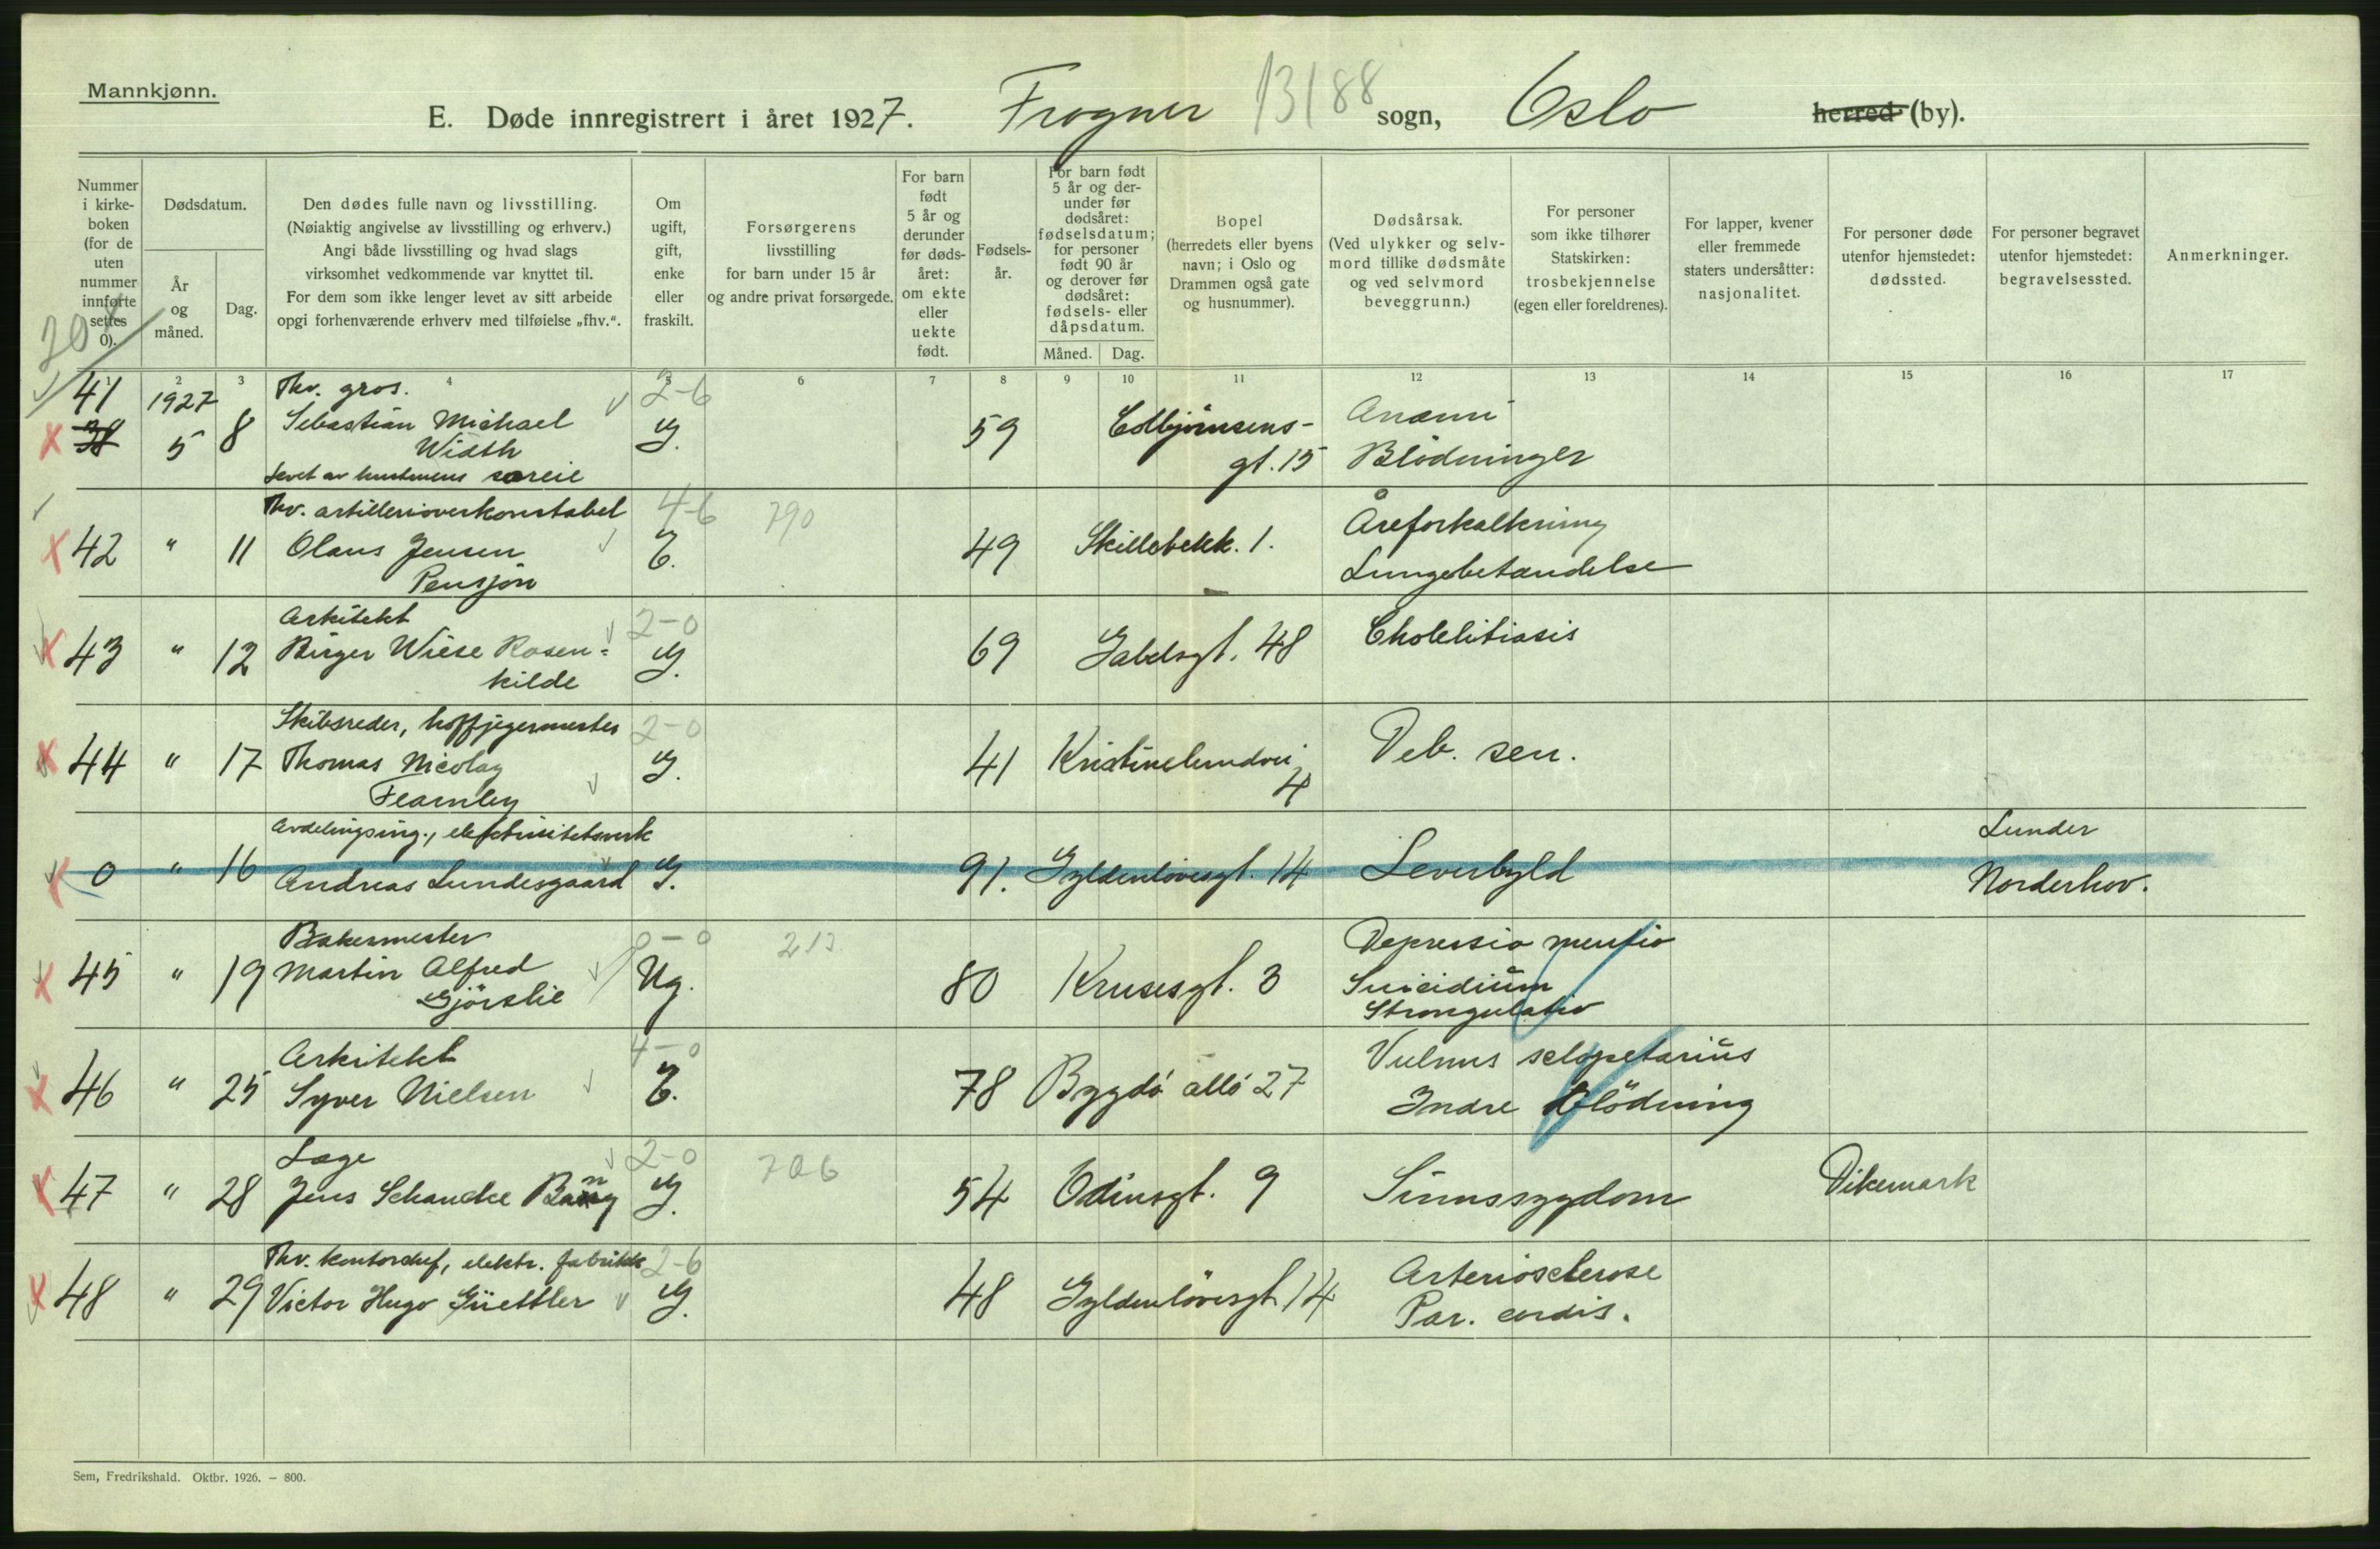 Mannkjønn.
E. Døde innregistrert i året 1927. Frogner 13188 sogn, Oslo herred (by).
Nummer i kirkeboken (for de uten nummer innførte settes 0).
Dødsdatum.
År og måned.
Dag.
Den dødes fulle navn og livsstilling.
(Nøiaktig angivelse av livsstilling og erhverv.)
Angi både livsstilling og hvad slags
virksomhet vedkommende var knyttet til.
For dem som ikke lenger levet av sitt arbeide
opgi forhenværende erhverv med tilføielse „fhv.“.
Om ugift, gift, enke eller fraskilt.
Forsørgerens
livsstilling
for barn under 15 år
og andre privat forsørgede.
For barn født 5 år og derunder før dødsåret: om ekte eller uekte født.
Fødselsår.
For barn født 5 år og derunder før dødsåret: fødselsdatum; for personer født 90 år og derover før dødsåret: fødsels- eller dåpsdatum.
Måned. Dag.
Bopel
(herredets eller byens
navn; i Oslo og
Drammen også gate
og husnummer).
Dødsårsak.
(Ved ulykker og selvmord tillike dødsmåte
og ved selvmord
beveggrunn.)
For personer
som ikke tilhører
Statskirken:
trosbekjennelse
(egen eller foreldrenes).
For lapper, kvener
eller fremmede
staters undersåtter:
nasjonalitet.
For personer døde
utenfor hjemstedet:
dødssted.
For personer begravet
utenfor hjemstedet:
begravelsessted.
Anmerkninger.
1 2 3 4 5 6 7 8 9 10 11 12 13 14 15 16 17
Fhv. gros. 2-6
41 38 1927 5 8 Sebastian Michael Width G. 59 Colbjørnsensgt. 15 Anæmi Blödninger
Levet av hustruens særeie
Fhv. artillerioverkonstabel 4-6 790
42 " 11 Olaus Jensen E. 49 Skillebekk. 1. Åreforkalkning Lungebetændelse
Pensjon
Arkitekt 2-0
43 " 12 Birger Wiese Rosenkilde G. 69 Gabelsgt. 48 Cholelitiasis
Skibsreder, hoffjegermester 2-0
44 " 17 Thomas Nicolay Fearnley G. 41 Kristinelundvei 4 Deb. sen.
Avdelingsing., elektrisitetsverk
0 " 16 Andreas Lundesgaard G. 91. Gyldenløvesgt. 14 Leverbyld Lunder Norderhov.
Bakermester 0-0 213
45 " 19 Martin Alfred Gjörslie Ug. 80 Krusesgt. 3 Depressio mentio Suicidium Strongulatio
Arkitekt 4-0
46 " 25 Syver Nielsen E. 78 Bygdö allé 27 Vulnus sclopetarius Indre Blödning
Læge 2-0 706
47 " 28 Jens Schancke Bang G. 54 Odinsgt. 9 Sinnssygdom Dikemark
Fhv. kontorchef, elektr. fabrikk 2-6
48 " 29 Victor Hugo Güettler G. 48 Gyldenlövesgt. 14 Arteriosclerose Par. cordis.
Sem, Fredrikshald. Oktbr. 1926. – 800.